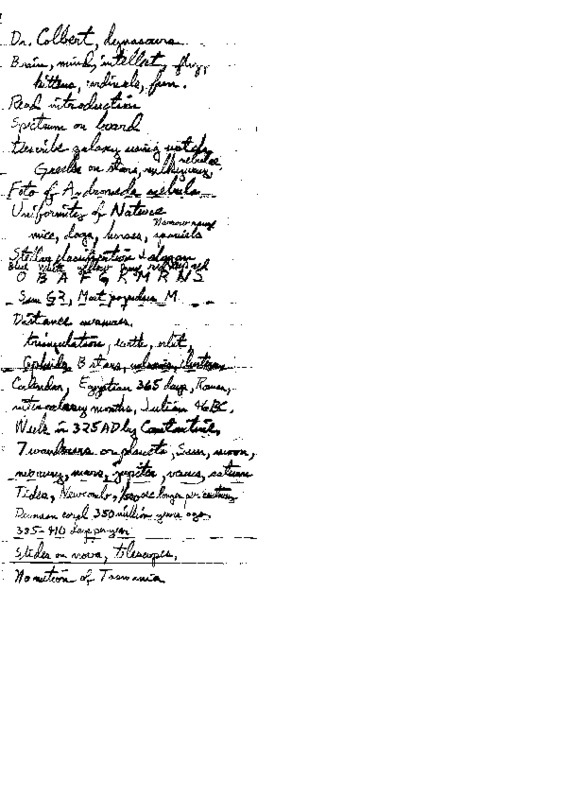 Dr. Colbert,
Brain, mind, intellect,
kittens, cardinals, fun.
Read introduction
Spectrum on board
Describe galaxy using
nebulae
Greeks on stars, milkyway,
Foto of Andromeda nebula
Uniformity of Nature
Narrow
mice, dogs, horses,
Stellar classification & slogan
Blue White yellow red
O B A F G K M R N S
Sun G2, Most populous M
Distance
triangulation, earth, orbit,
B stars,
Calendar, Egyptian 365 days, Roman,
months, Julian 46 BC.
Week in 325 AD by Constantine,
7 wanderers or planets, Sun, moon,
mercury, mars, jupiter, venus, saturn
Tides, Newcomb, longer per century
coral 350 million years ago,
385-410 days per year
Slides on nova, telescopes,
of Tasmania